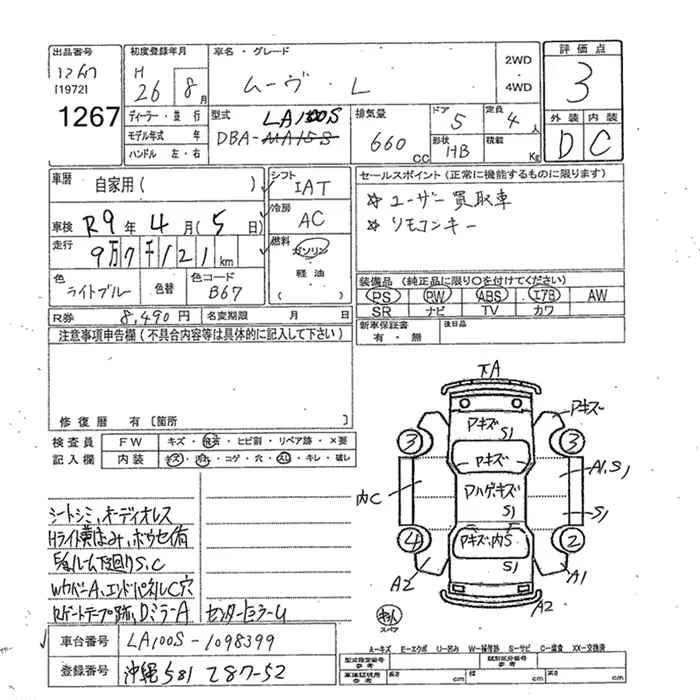 出品番号
1267
[1972]
1267
初度登録年月
H 26年 8月
ディーラー・並行
モデル年式 年
ハンドル 左・右
車名・グレード
ムーヴ・L
2WD
4WD
型式
LA100S
DBA-
排気量
660 CC
ドア 5
定員 4人
形状 HB
積載 Kg
評価点
3
外装 内装
D C
車歴
自家用( )
車検 R9年 4月(5日)
走行 9万7千121km
色 ライトブルー
色替
色コード B67
シフト
IAT
冷房
AC
燃料
ガソリン
軽油
( )
セールスポイント(正常に機能するものに限ります)
☆ユーザー買取車
☆リモコンキー
装備品(純正品に限り〇を付けてください)
PS PW ABS エアB AW
SR ナビ TV カワ
新車保証書
有・無
後日品
R券 8,490円
名変期限 月 日
注意事項申告欄(不具合内容等は具体的に記入して下さい)
修復歴 有[箇所 ]
検査員
記入欄
FW キズ・飛石・ヒビ割・リペア跡・×要
内装 キズ・汚れ・コゲ・穴・スレ・キレ・破レ
シートシミ、オーディオレス
Hライト黄ばみ、ホウセイ有
ルーム下回りS、C
WカバーA、エンドパネルC穴
Rゲートテープ跡、DミラーA
センターモジュール
下A
Aキズ
3
3
S1
Aキズ
A1、S1
内C
Aハゲ、キズ
S1
S1
4
Aキズ、内S
S1
2
A2
A1
A2
スペア
A-キズ E-エクボ U-凹み W-補修跡 S-サビ C-腐食 XX-交換済
車台番号 LA100S-1098399
登録番号 沖縄 581 て 87-52
型式指定番号
参考
類別区分番号
参考
車庫証明用
参考
長さ cm
幅 cm
高さ cm